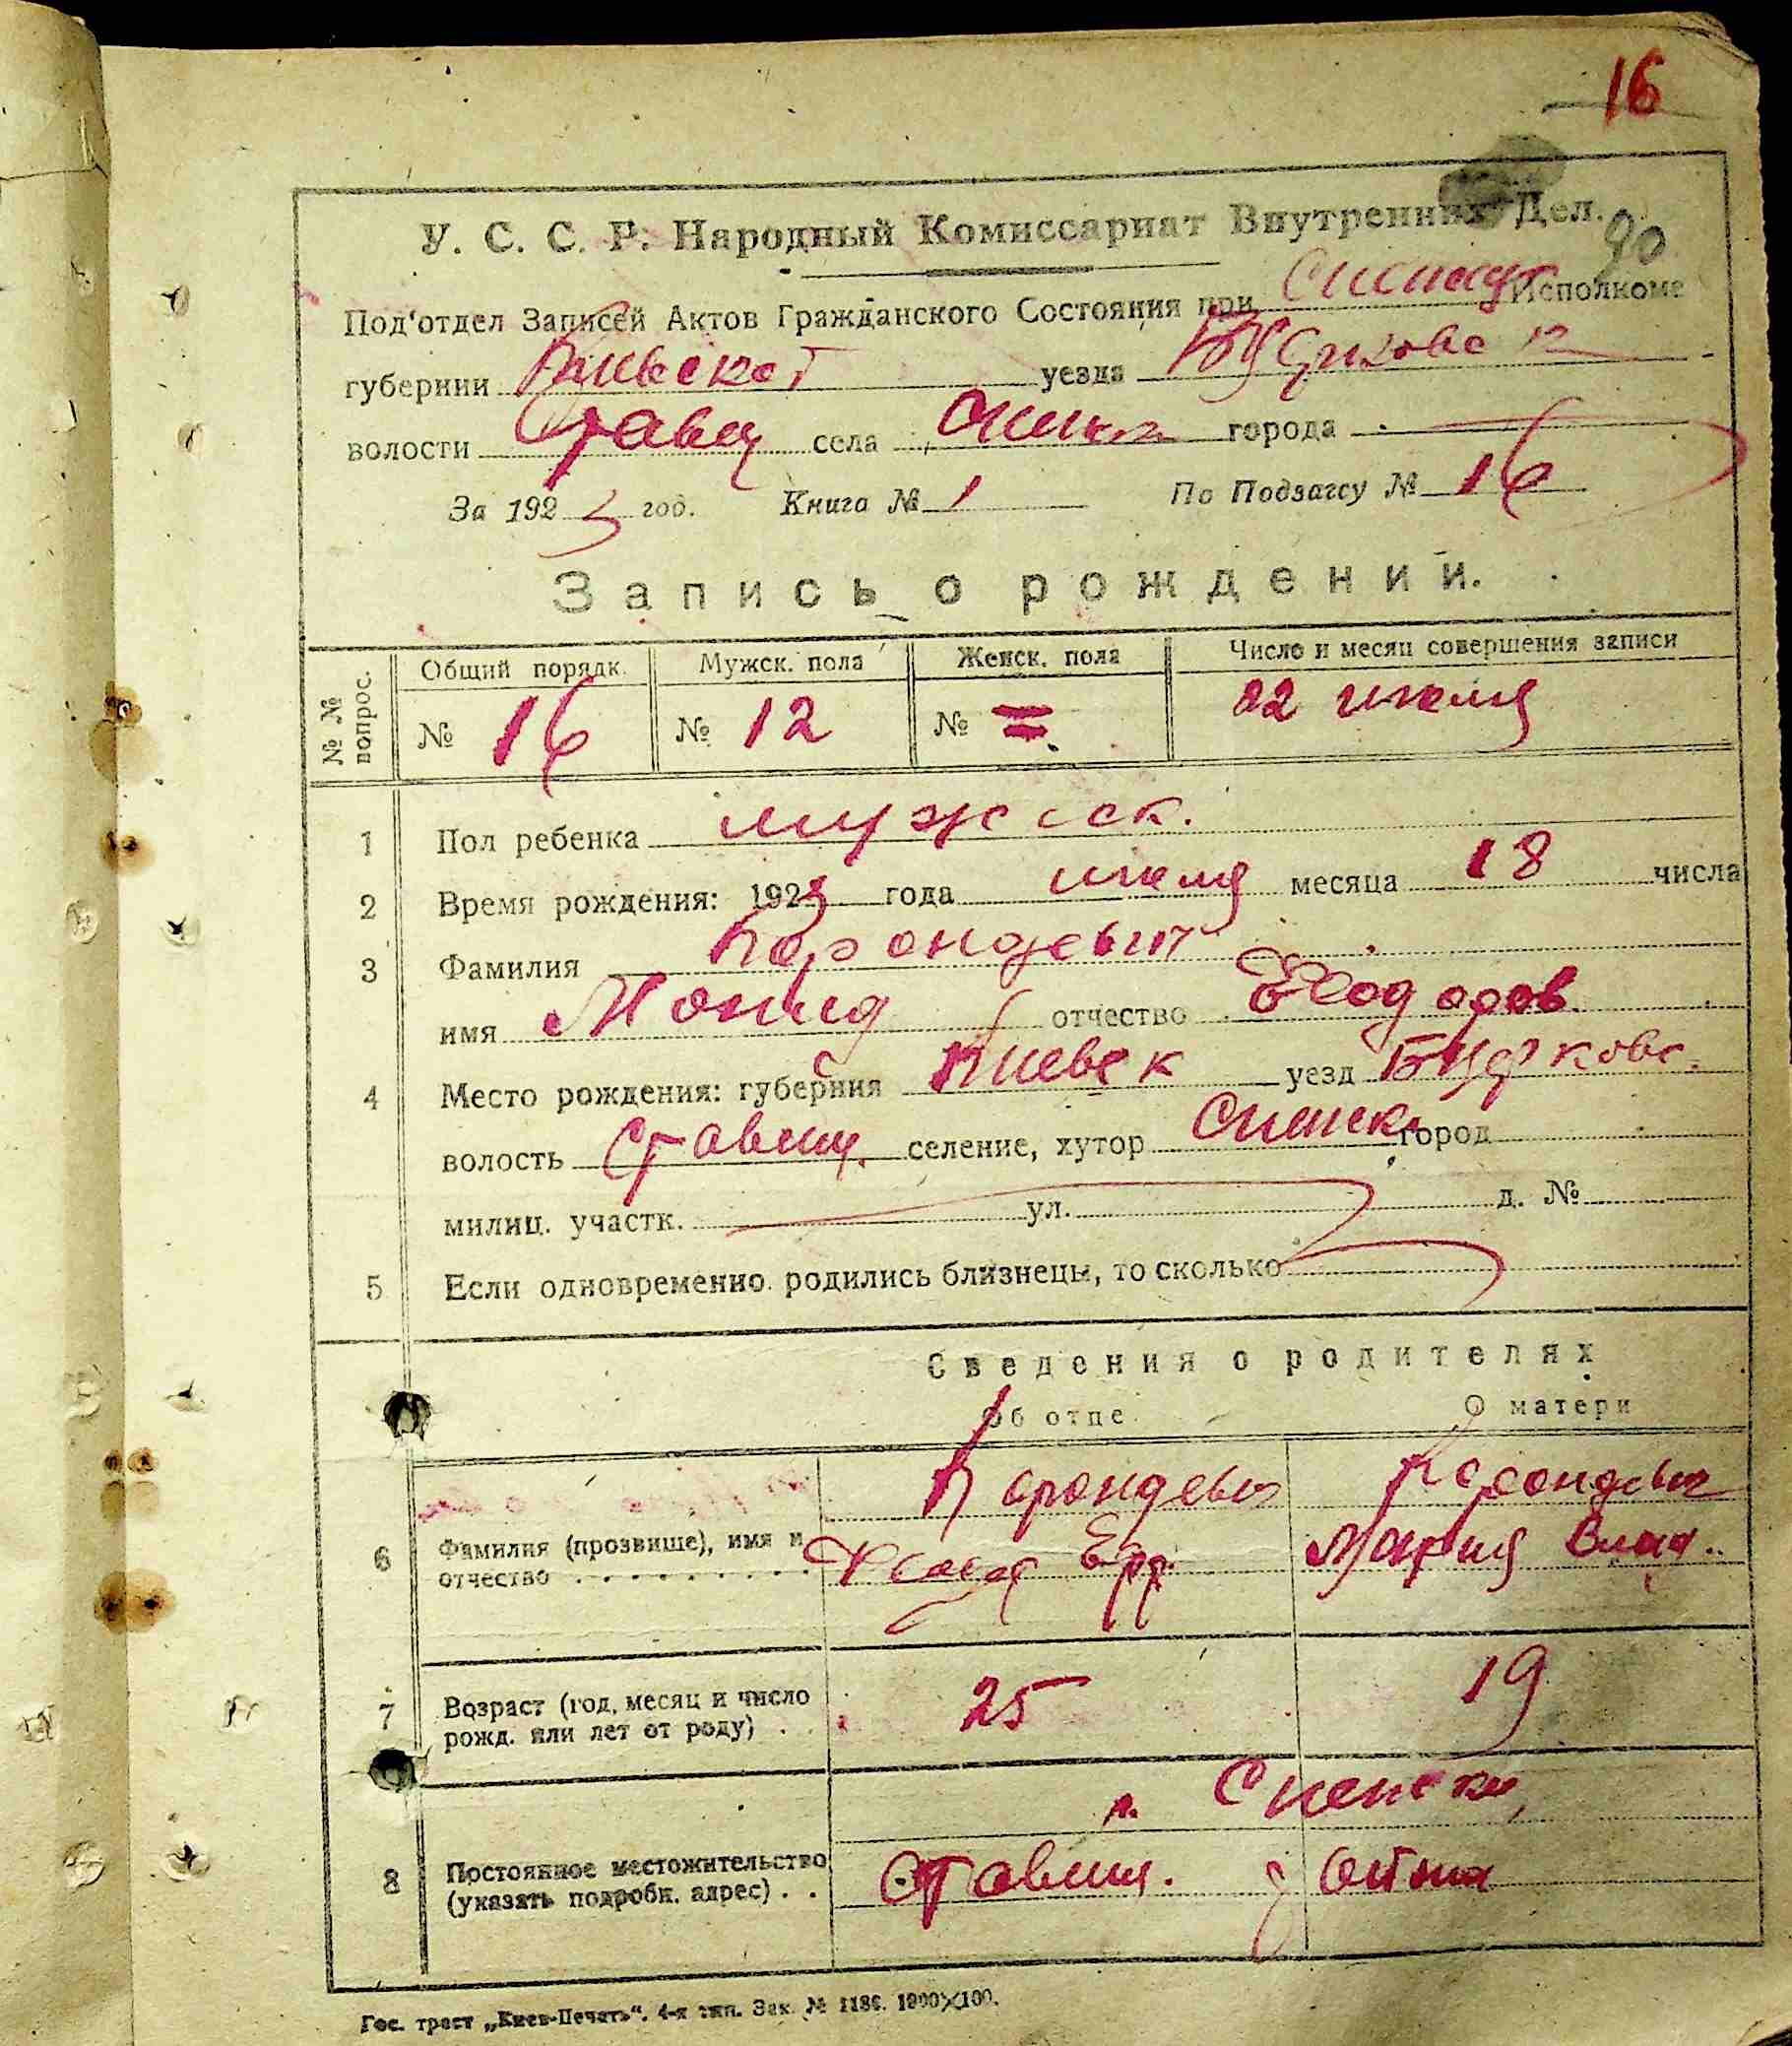 16
У. С. С. Р. Народный Комиссариат Внутренних Дел.
90
Под‘отдел Записей Актов Гражданского Состояния при Исполкоме
губернии уезда
волости села города
За 1923 год. Книга № 1 По Подзагсу № 16
Запись о рождении.
№ № вопрос. Общий порядк. Мужск. пола Женск. пола Число и месяц совершения записи
№ 16 № 12 № = 22 июля
1 Пол ребенка мужеск.
2 Время рождения: 1923 года июля месяца 18 числа
3 Фамилия
имя отчество Феодоров.
4 Место рождения: губерния Киевск уезд
волость Ставищ. селение, хутор город
милиц. участк. ул. д. №
5 Если одновременно родились близнецы, то сколько
Сведения о родителях
Об отце О матери
Карондевич Карондевич
6 Фамилия (прозвище), имя и Мария Влад.
отчество . . . . . . . . . .
7 Возраст (год, месяц и число 25 19
рожд. или лет от роду) . .
с.
8 Постоянное местожительство Ставищ.
(указать подробн. адрес) . .
Гос. трест „Киев-Печать“. 4-я тип. Зак. № 1186. 1000×100.